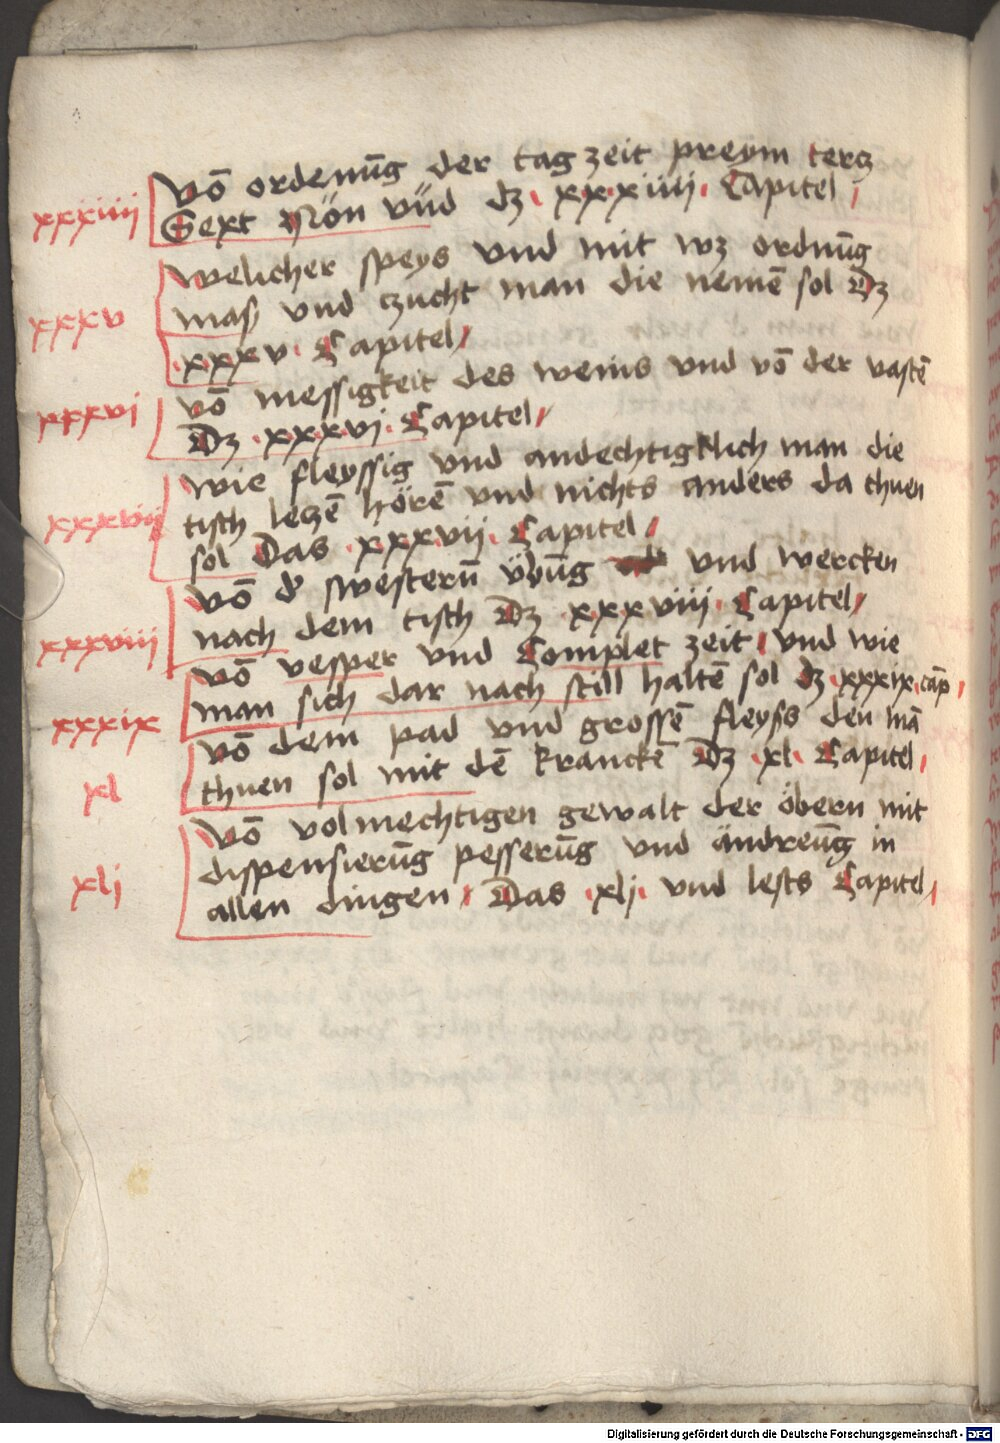 xxxiiii
Vō ordenūg der tag zeit preym tercz
Sext Nön vnd dz · xxxiiii · Capitel /
xxxv
Welicher speys vnd mit wz ordnūg
mass vnd czucht man die nemē sol Dz
· xxxv · Capitel /
xxxvi
Vō messigkeit des weins vnd vō der vastē
Dz · xxxvj · Capitel /
xxxvii
Wie fleyssig vnd andechtigklich man die
tisch leczē hörē vnd nichts anders da thuen
sol Das · xxxvij · Capitel /
xxxviii
Vō dˀ swesterñ übūg vnd wercken
nach dem tisch Dz xxxviii · Capitel /
xxxix
Vō vesper vnd Complet zeit / vnd wie
man sich dar nach still haltē sol dz · xxxix · cap̄ /
xl
Vō dem pad vnd grossē fleyss den mā
thuen sol mit dē kranckē Dz · xl · Capitel /
xlj
Vō volmechtigen gewalt der öbern mit
dispensierūg pesserūg vnd ändreūg in
allen dingen / Das · xlj · vnd lests Capitel /
Digitalisierung gefördert durch die Deutsche Forschungsgemeinschaft - DFG